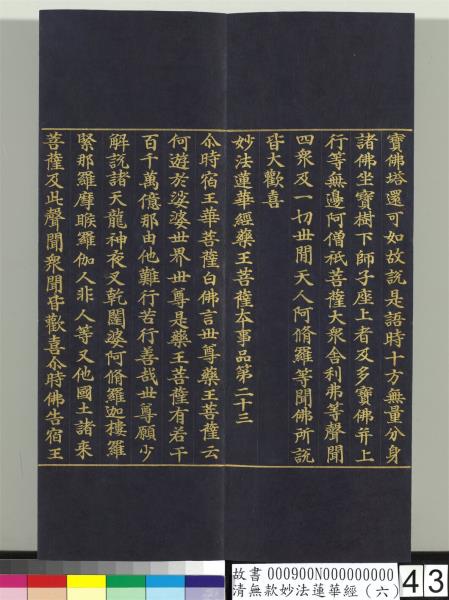 寶佛塔還可如故說是語時十方無量分身
諸佛坐寶樹下師子座上者及多寶佛幷上
行等無邊阿僧祇菩薩大衆舍利弗等聲聞
四衆及一切世閒天人阿脩羅等聞佛所說
皆大歡喜
妙法蓮華經藥王菩薩夲事品第二十三
尒時宿王華菩薩白佛言世尊藥王菩薩云
何遊於娑婆世界世尊是藥王菩薩有若干
百千萬億那由他難行苦行善哉世尊願少
解說諸天龍神夜叉乾闥婆阿脩羅迦樓羅
緊那羅摩睺羅伽人非人等又他國土諸來
菩薩及此聲聞衆聞皆歡喜尒時佛告宿王
故書 000900N000000000
清無款妙法蓮華經(六)
43